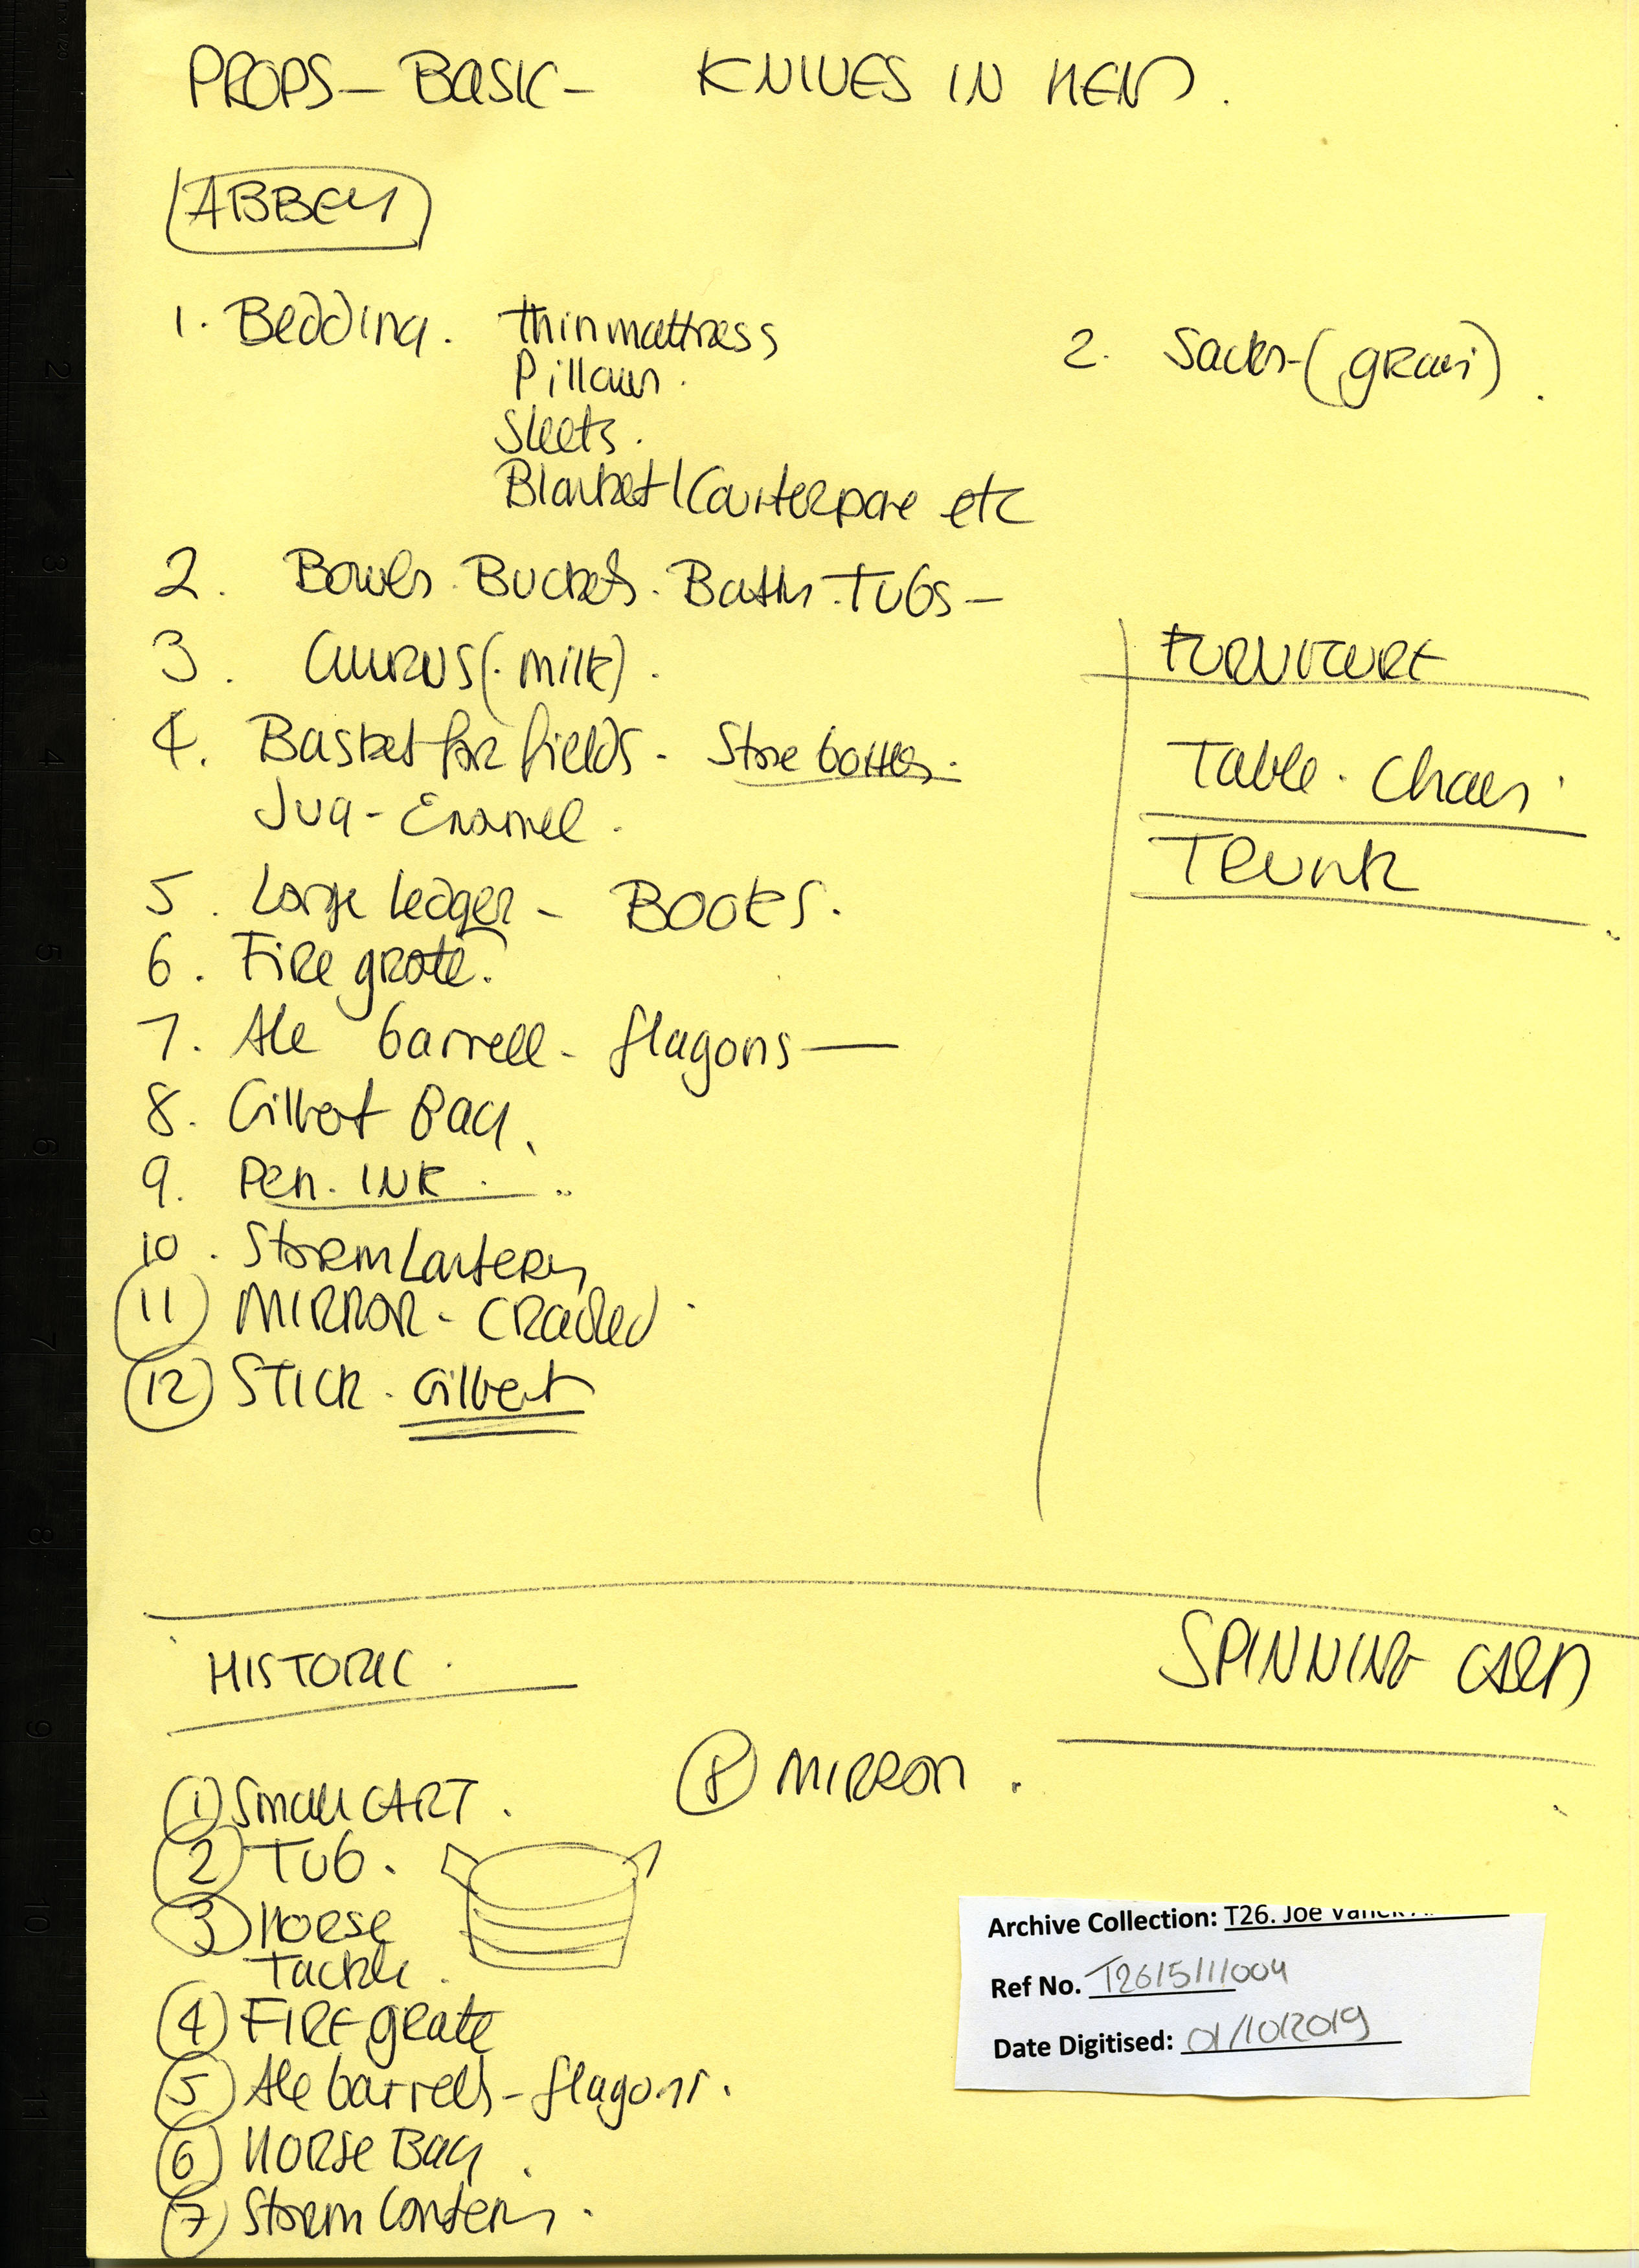 PROPS - BASIC - KNIVES IN HENS.
ABBEY
1. Bedding. thin mattress
Pillows.
Sheets.
Blanket/Counterpane etc
2. Sacks - (grain).
2. Bowls. Buckets. Baths. Tubs -
3. CHURNS (. milk).
4. Basket for fields - Stone bottles.
Jug - Enamel.
5. Large ledger - BOOKS.
6. Fire grate.
7. Ale barrell - flagons -
8. Gilbert Bag.
9. Pen. INK.
10. Storm Lantern
11 MIRROR - CRACKED
12 STICK - Gilbert
FURNITURE
Table. Chairs.
Trunk
HISTORIC.
SPINNING CARD
1 Small CART.
2 TUB.
3 HORSE
Tackle.
4 FIRE grate
5 Ale barrells - flagons.
6 HORSE BAG.
7 Storm Lantern.
8 MIRROR.
Archive Collection: T26. Joe Vanek
Ref No. T26/5/1/004
Date Digitised: 01/10/2019